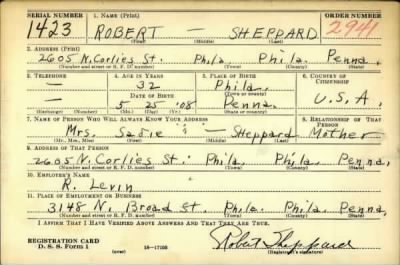 SERIAL NUMBER 1. NAME (Print) ORDER NUMBER
1423 ROBERT — SHEPPARD 2941
(First) (Middle) (Last)
2. ADDRESS (Print)
2605 N. Corlies St. Phila Phila. Penna.
(Number and street or R. F. D. number) (Town) (County) (State)
3. TELEPHONE 4. AGE IN YEARS 5. PLACE OF BIRTH 6. COUNTRY OF CITIZENSHIP
— 32 Phila.
DATE OF BIRTH (Town or county)
— 5 25 '08 Penna. U.S.A.
(Mo.) (Day) (Yr.) (State or country)
7. NAME OF PERSON WHO WILL ALWAYS KNOW YOUR ADDRESS 8. RELATIONSHIP OF THAT PERSON
Mrs. Sadie — Sheppard Mother
(Mr., Mrs., Miss) (First) (Middle) (Last)
9. ADDRESS OF THAT PERSON
2605 N. Corlies St. Phila, Phila, Penna,
(Number and street or R. F. D. number) (Town) (County) (State)
10. EMPLOYER'S NAME
R. Levin
11. PLACE OF EMPLOYMENT OR BUSINESS
3148 N. Broad St. Phila. Phila. Penna,
(Number and street or R. F. D. number) (Town) (County) (State)
I AFFIRM THAT I HAVE VERIFIED ABOVE ANSWERS AND THAT THEY ARE TRUE.
REGISTRATION CARD
D. S. S. Form 1 (over) 16—17105 Robert Sheppard
(Registrant's signature)